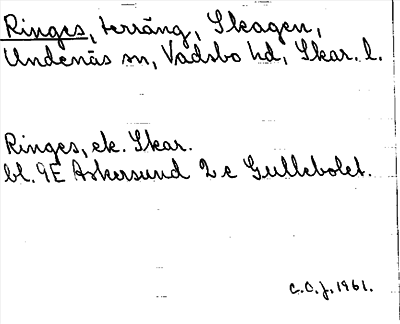 Ringes, terräng, Skagen,
Undenäs sn, Vadsbo hd, Skar. l.
Ringes, ek. Skar.
bl. 9E Askersund 2 c Gullebolet.
C.O.J. 1961.